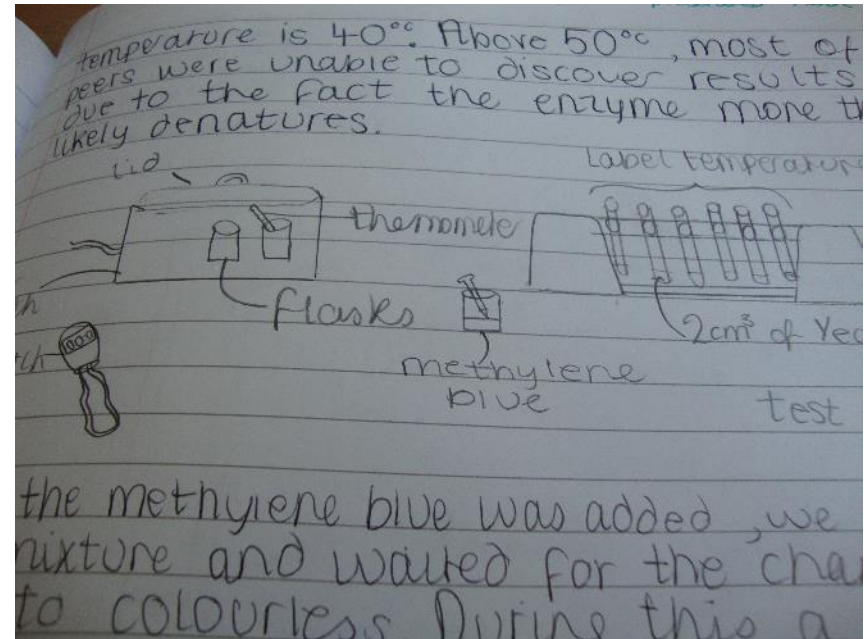 temperature is 40°c. Above 50°c, most of
peers were unable to discover results
due to the fact the enzyme more th
likely denatures.
Label temperature
lid
themomele
flasks
2cm³ of Yea
methylene
blue
test
the methylene blue was added, we
mixture and waited for the cha
to colourless During this a